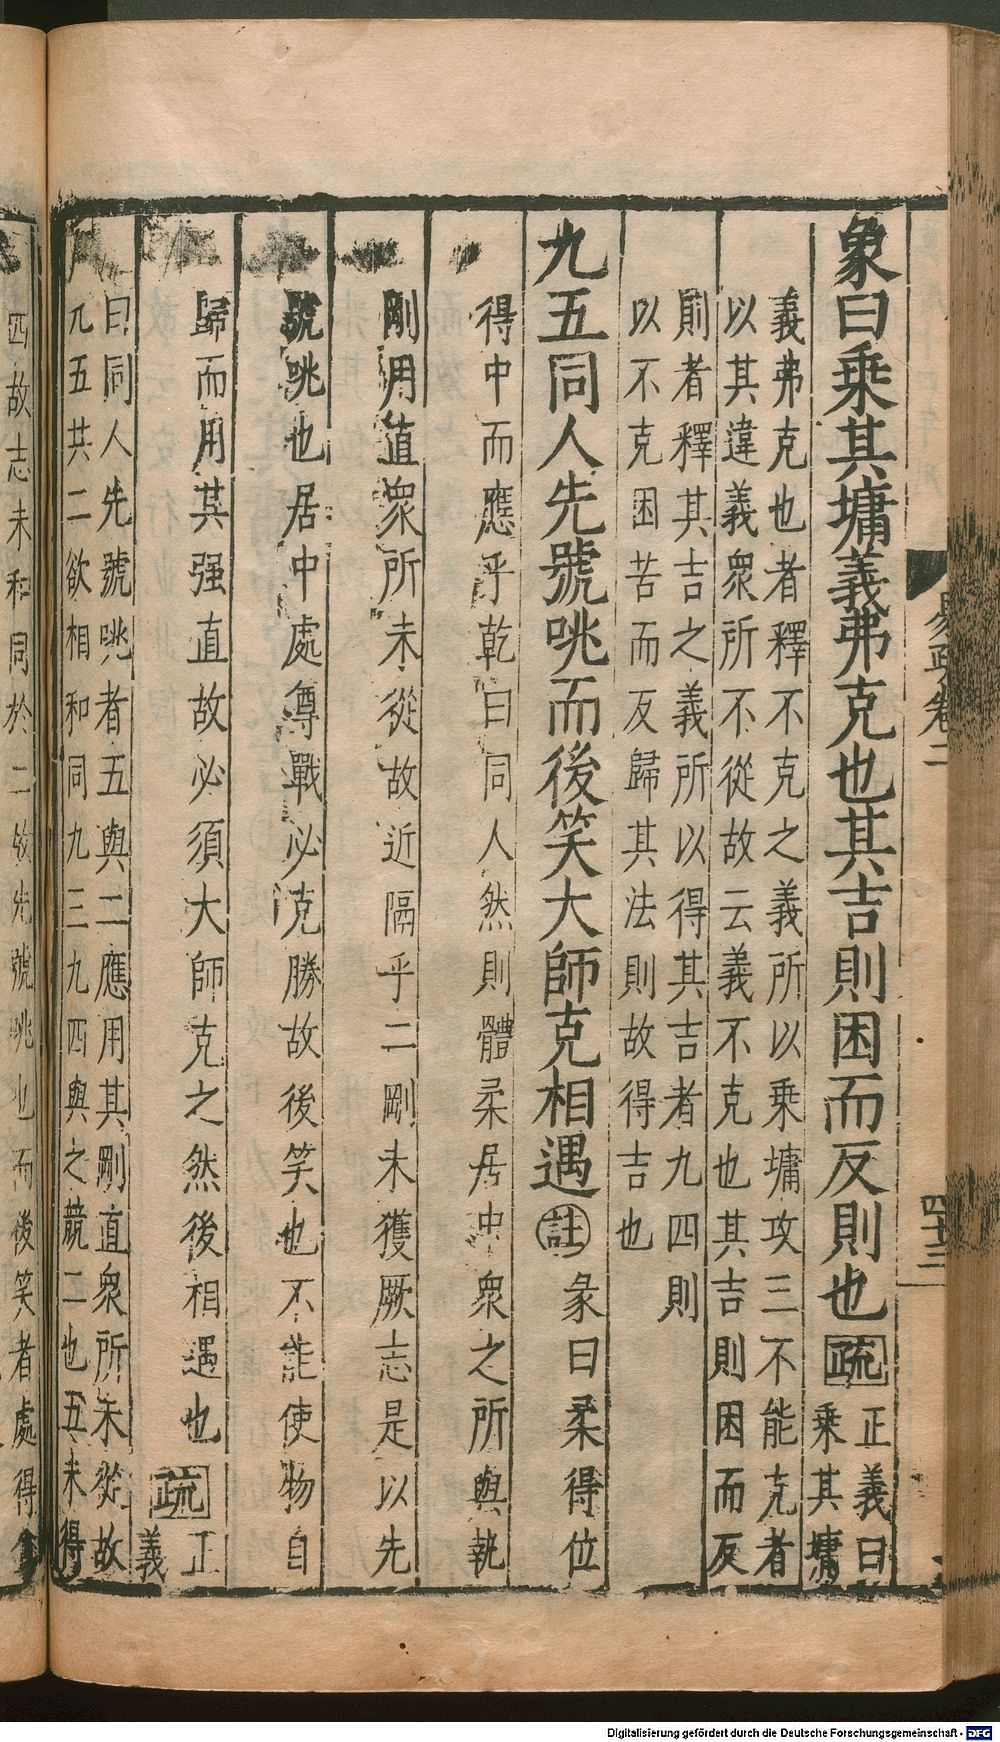 象曰乘其墉義弗克也其吉則困而反則也疏正義曰
乘其墉
義弗克也者釋不克之義所以乘墉攻三不能克者
以其違義衆所不從故云義不克也其吉則困而反
則者釋其吉之義所以得其吉者九四則
以不克困苦而反歸其法則故得吉也
九五同人先號咷而後笑大師克相遇註彖曰柔得位
得中而應乎乾曰同人然則體柔居中衆之所與執
剛用直衆所未從故近隔乎二剛未獲厥志是以先
號咷也居中處尊戰必克勝故後笑也不能使物自
歸而用其强直故必須大師克之然後相遇也疏正
義
曰同人先號咷者五與二應用其剛直衆所未從故
九五共二欲相和同九三九四與之競二也五未得
四故志未和同於二故先號咷也而後笑者處得
易疏卷二
四十三
Digitalisierung gefördert durch die Deutsche Forschungsgemeinschaft - DFG